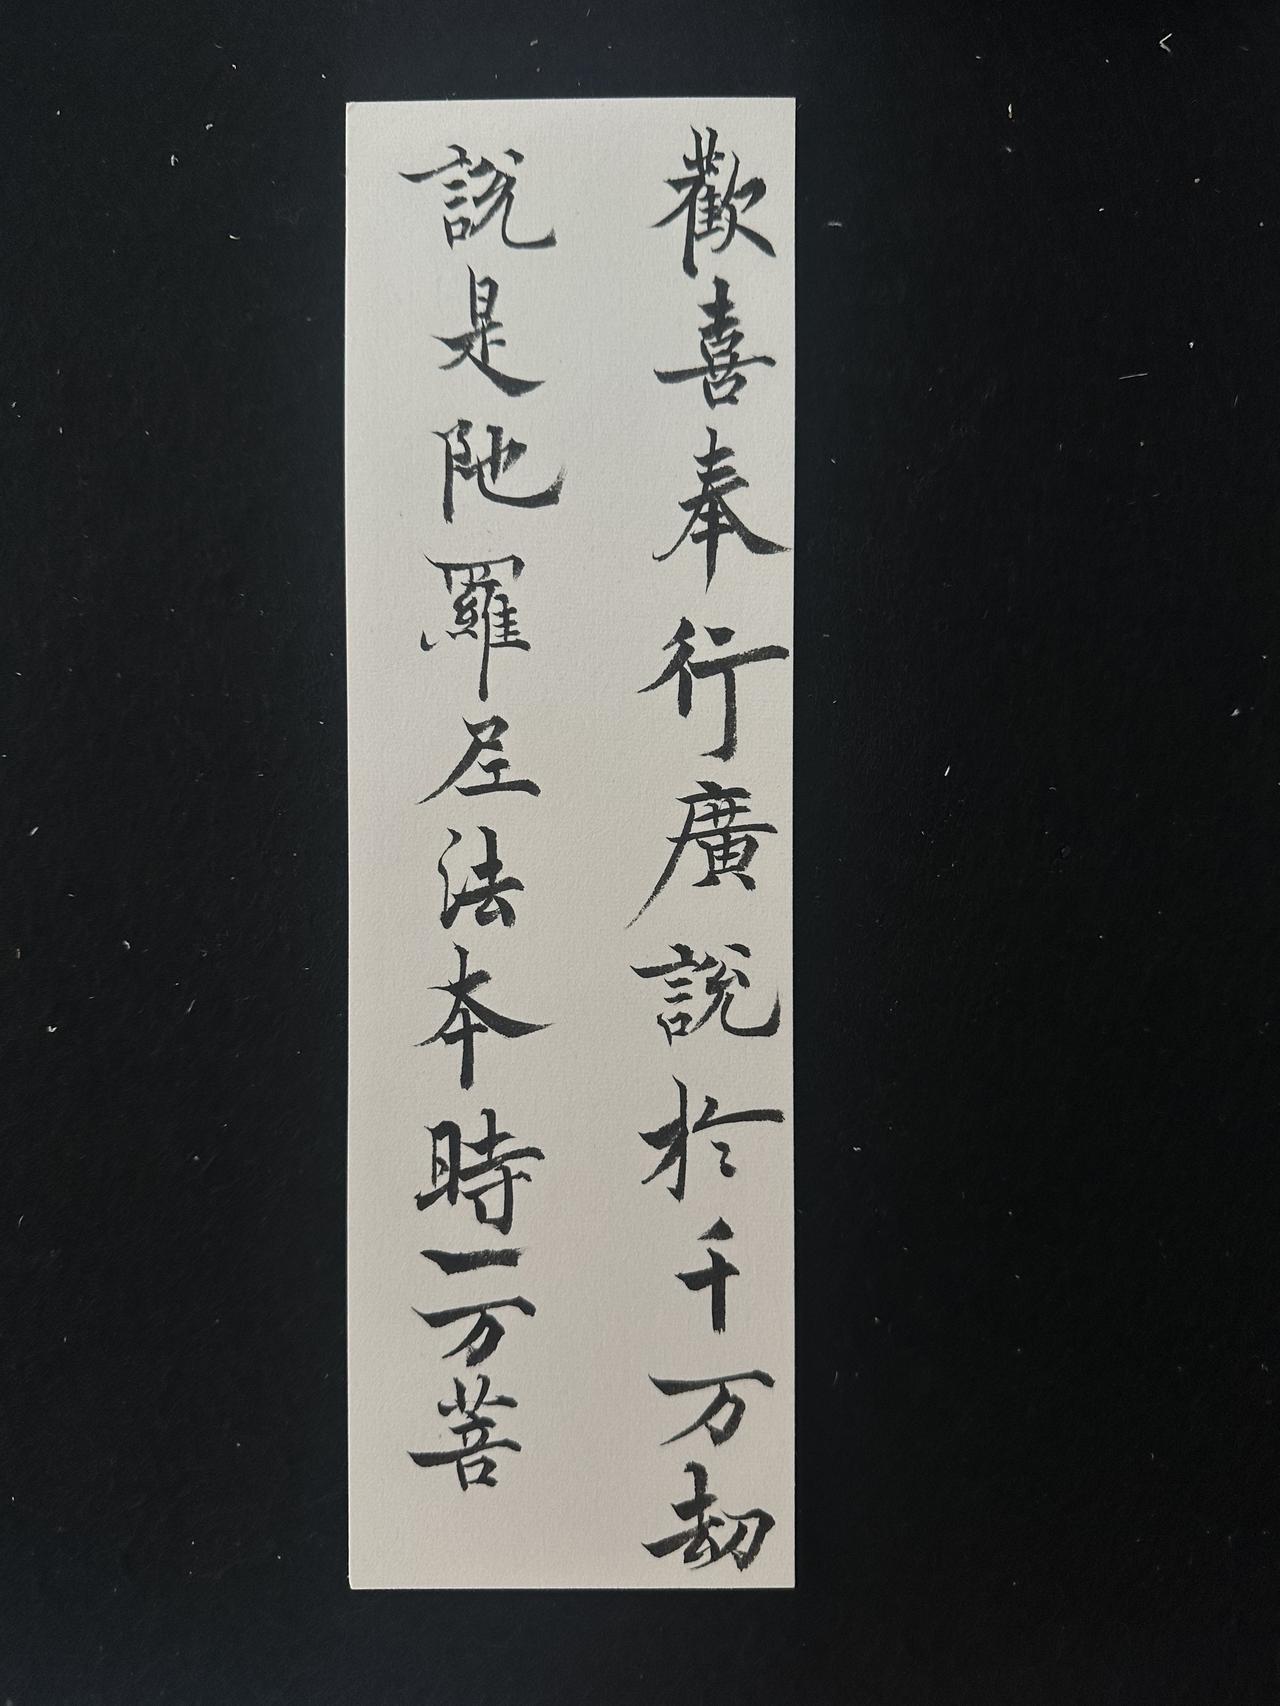 歡喜奉行廣說於千万劫
說是陁羅尼法本時一万菩